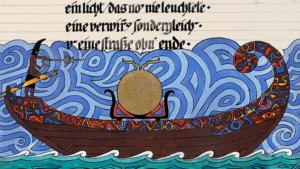 ein licht/ das no nie leuchtete·
eine verwirrs sondergleich·
v eine straße ohn' ende·